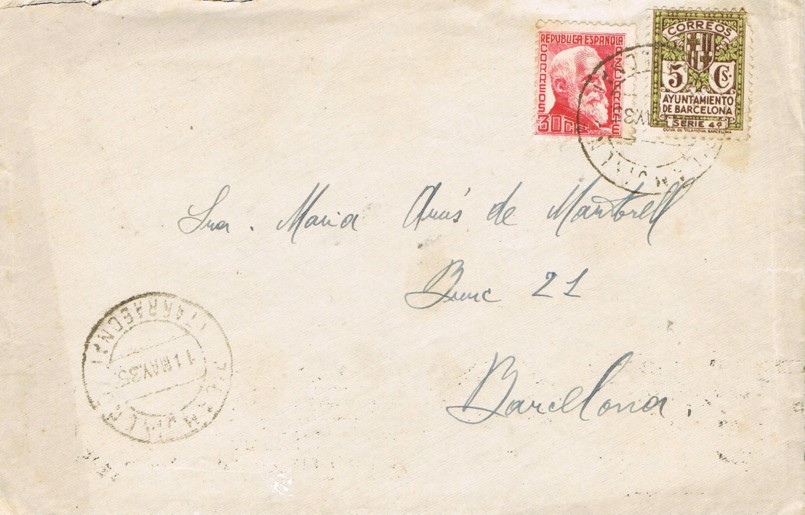 REPUBLICA ESPAÑOLA
CORREOS
30 CTS
CORREOS
5 Cs.
AYUNTAMIENTO
DE BARCELONA
SERIE 4ª
Sra. Maria Arús de Martorell
Bruc 21
Barcelona.
(TARRAGONA)
11 MAY.35